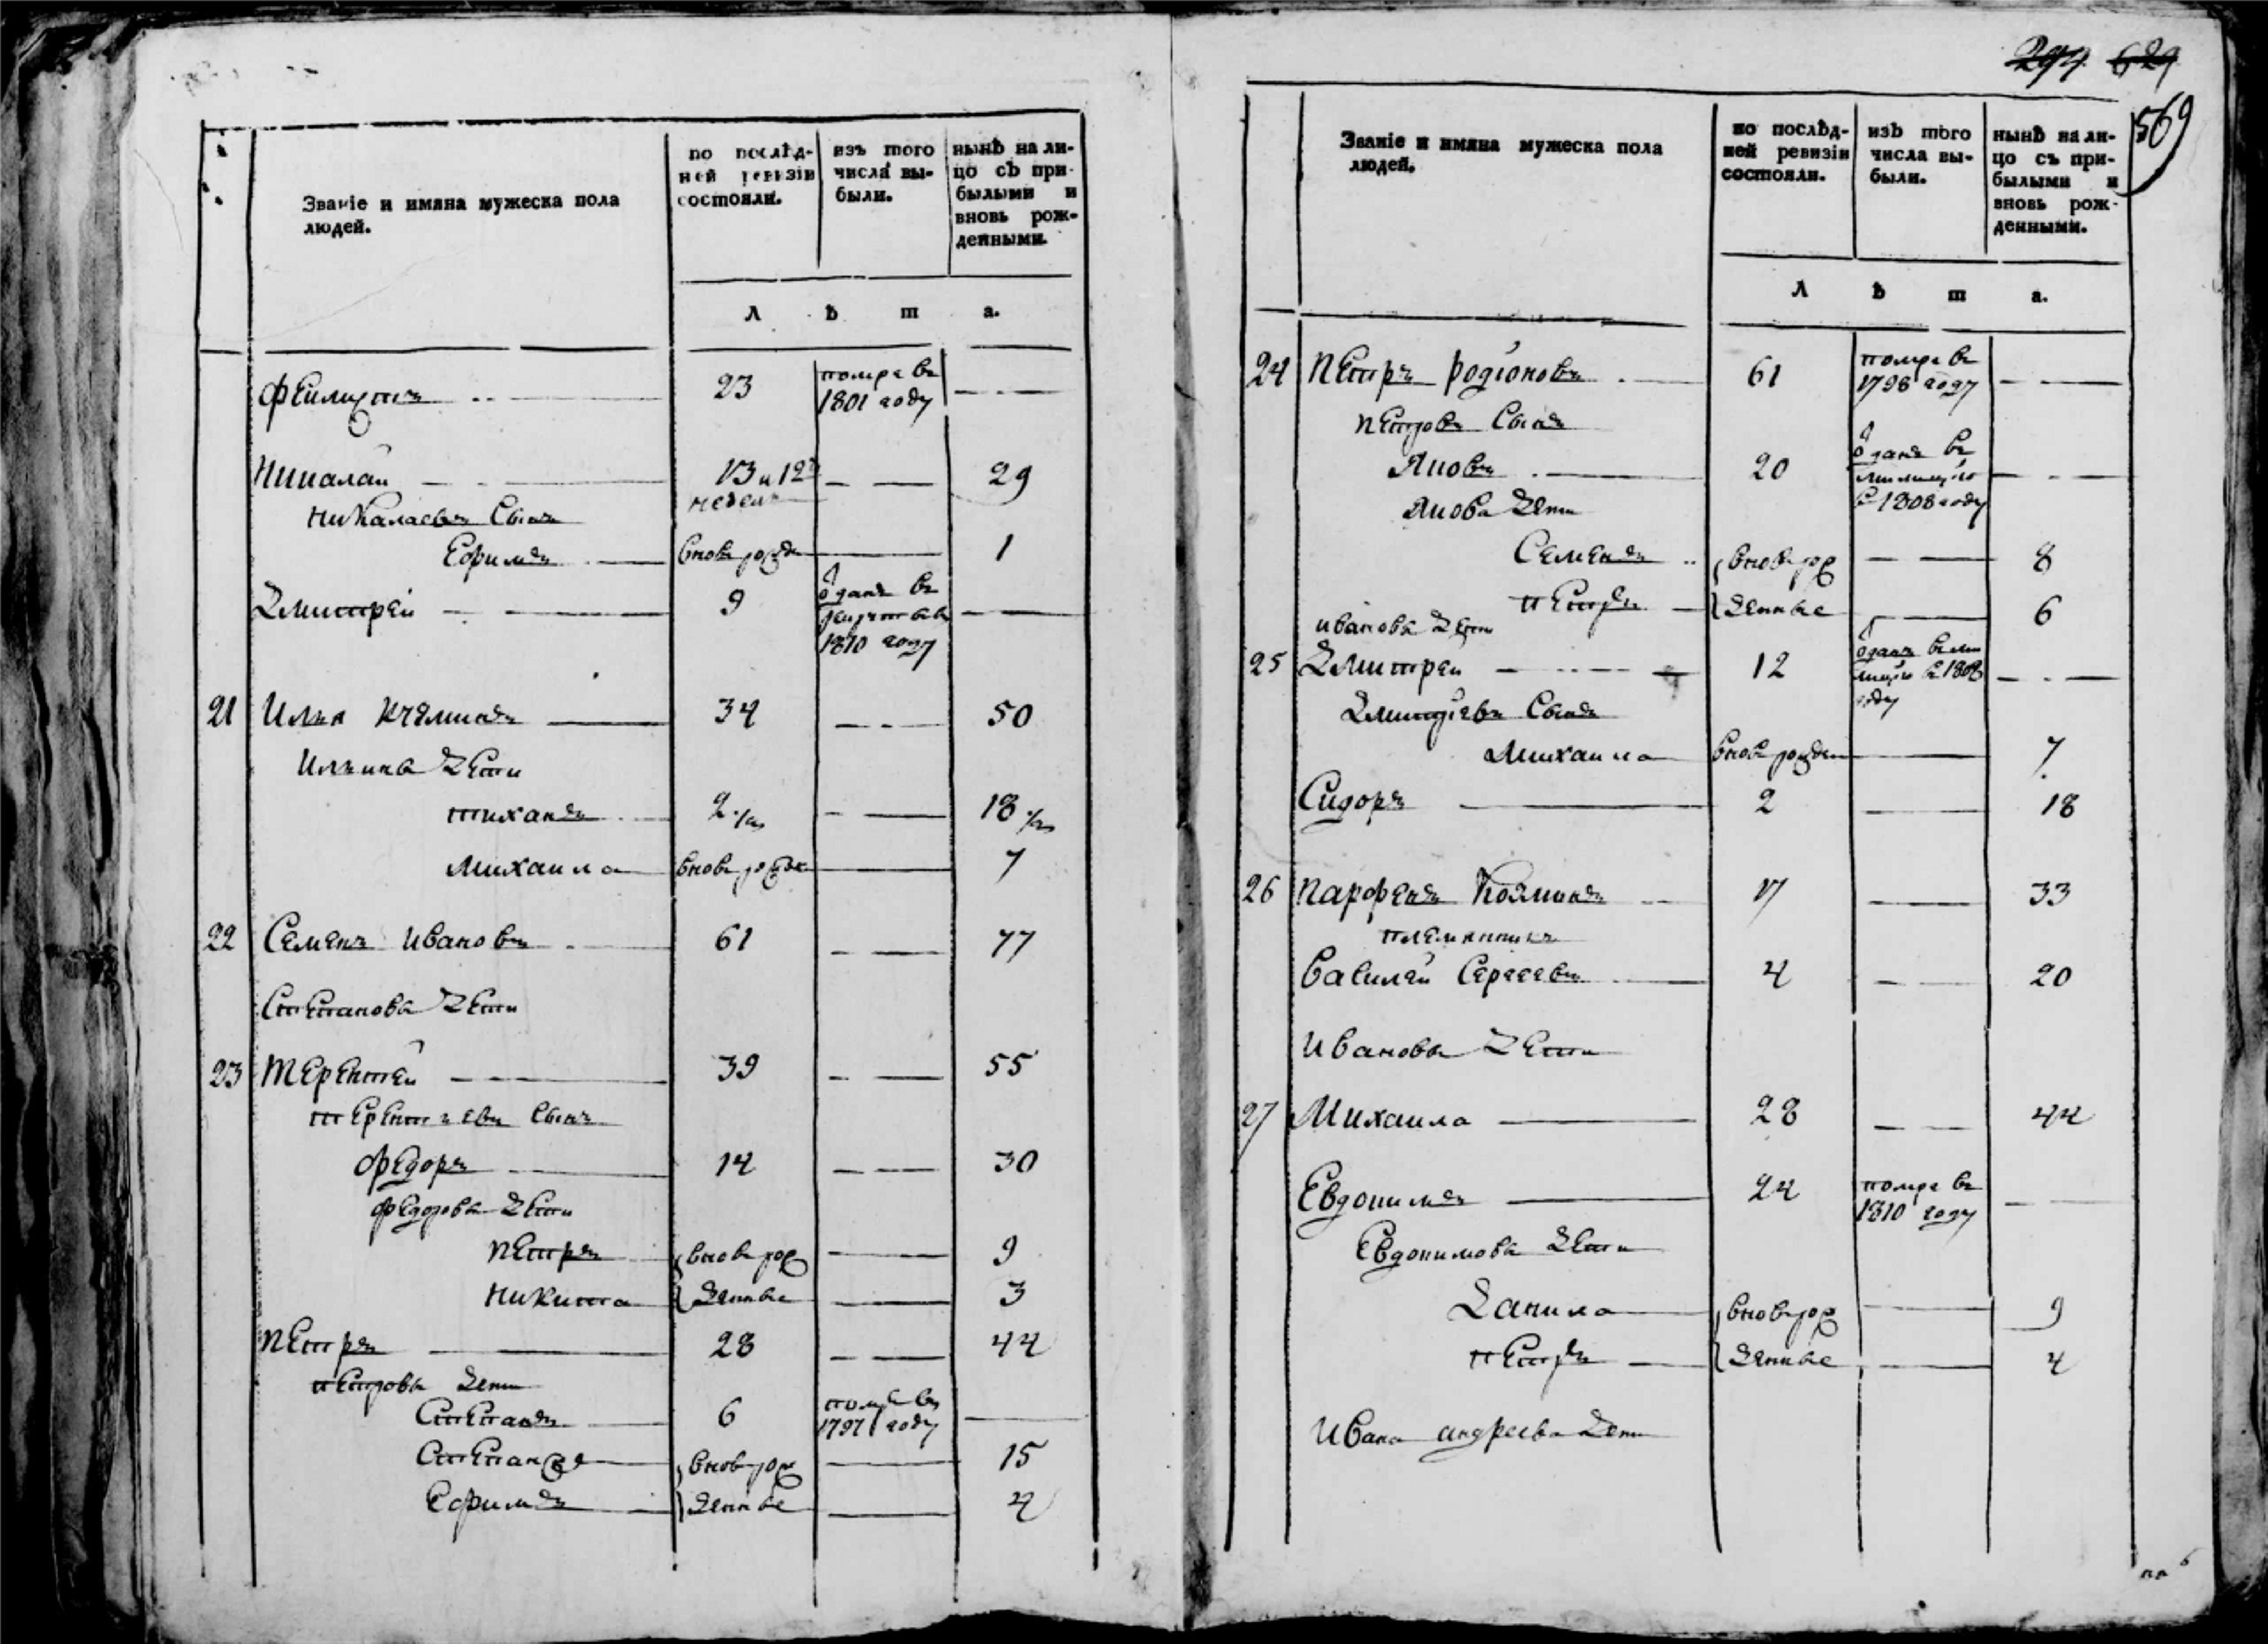 Званіе и имяна мужеска пола
людей.
по послѣд-
ней ревизіи
состояли.
изъ того
числа вы-
были.
нынѣ на ли-
цо съ при-
былыми и
вновь рож-
денными.
Л ѣ т а.
23 помре въ
1801 году
Никалай 13 и 12
недель 29
Никалаевъ Сынъ
Ефимъ вновь рожде 1
Дмитрей 9 ѿданъ въ
рекруты въ
1810 году
21 Илья 34 50
Ильины Дети
Тиханъ 2 18
Михаила вновь рожде 7
22 Семенъ Ивановъ 61 77
Степановы Дети
23 Терентей 39 55
Терентьевъ Сынъ
Федоръ 14 30
Федоровы Дети
Петръ вновь рож 9
Никита денные 3
Петръ 28 44
Петровы Дети
Степанъ 6 помре въ
1797 году
Степанже вновь рож 15
Ефимъ денные 4
294 629
569
Званіе и имяна мужеска пола
людей.
по послѣд-
ней ревизіи
состояли.
изъ того
числа вы-
были.
нынѣ на ли-
цо съ при-
былыми и
вновь рож-
денными.
Л ѣ т а.
24 Петръ Родіоновъ 61 помре въ
1798 году
Петровъ Сынъ
Яковъ 20 ѿданъ въ
милицію
в 1808 году
Якова Дети
Семенъ вновь рож 8
Петръ денные 6
Ивановы Дети
25 Дмитрей 12 ѿданъ въ ми
лицію в 1808
году
Дмитріевъ Сынъ
Михаила вновь рожден 7
Сидоръ 2 18
26 Парфенъ Козминъ 17 33
племянникъ
Василей Сергеевъ 4 20
Ивановы Дети
27 Михаила 28 44
Евдокимъ 24 помре въ
1810 году
Евдокимовы Дети
Данила вновь рож 9
Петръ денные 4
Ивана Андреева Дети